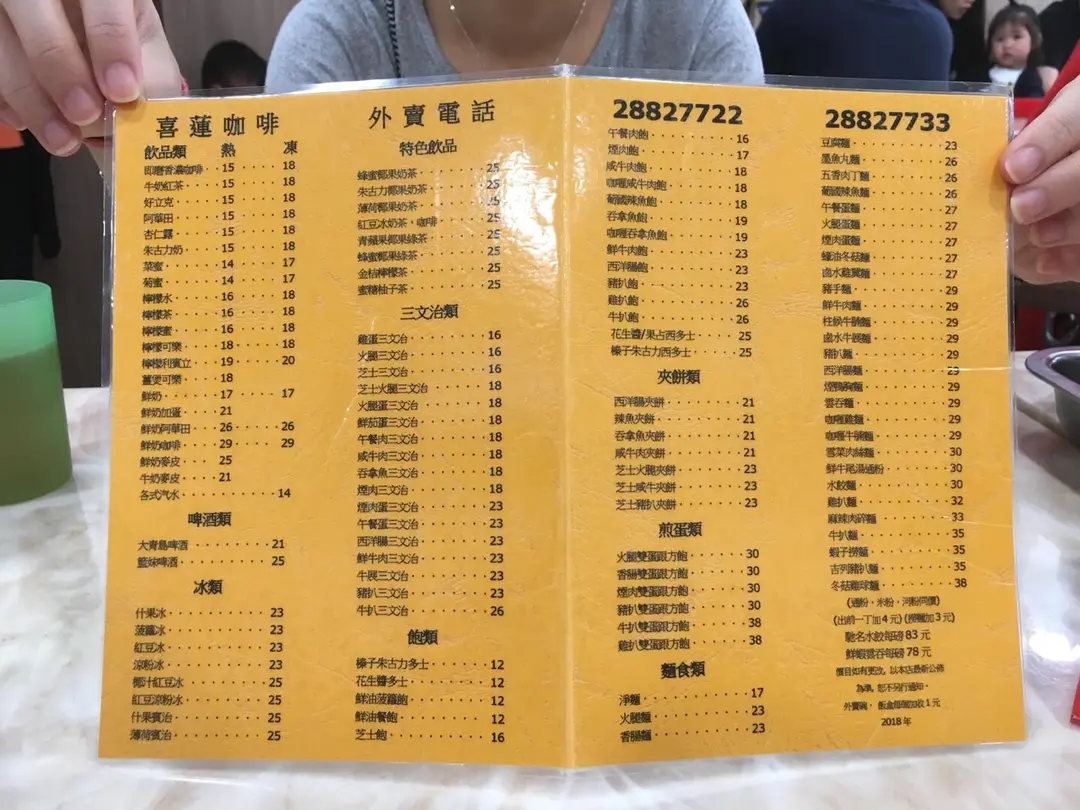 喜蓮咖啡
飲品類 熱 凍
即磨香濃咖啡 15 18
牛奶紅茶 15 18
好立克 15 18
阿華田 15 18
杏仁露 15 18
朱古力奶 15 18
菜蜜 14 17
菊蜜 14 17
檸檬水 16 18
檸檬茶 16 18
檸檬蜜 16 18
檸檬可樂 18 18
檸檬利賓立 19 20
薑煲可樂 18
鮮奶 17 17
鮮奶加蛋 21
鮮奶阿華田 26 26
鮮奶咖啡 29 29
鮮奶麥皮 25
牛奶麥皮 21
各式汽水 14
啤酒類
大青島啤酒 21
藍妹啤酒 25
冰類
什果冰 23
菠蘿冰 23
紅豆冰 23
涼粉冰 23
椰汁紅豆冰 25
紅豆涼粉冰 25
什果賓治 25
薄荷賓治 25
外賣電話
特色飲品
蜂蜜椰果奶茶 25
朱古力椰果奶茶 25
薄荷椰果奶茶 25
紅豆冰奶茶，咖啡 25
青蘋果椰果綠茶 25
蜂蜜椰果綠茶 25
金桔檸檬茶 25
蜜糖柚子茶 25
三文治類
雞蛋三文治 16
火腿三文治 16
芝士三文治 16
芝士火腿三文治 18
火腿蛋三文治 18
鮮茄蛋三文治 18
午餐肉三文治 18
咸牛肉三文治 18
吞拿魚三文治 18
煙肉三文治 18
煙肉蛋三文治 23
午餐蛋三文治 23
西洋腸三文治 23
鮮牛肉三文治 23
牛展三文治 23
豬扒三文治 23
牛扒三文治 26
飽類
榛子朱古力多士 12
花生醬多士 12
鮮油菠蘿飽 12
鮮油餐飽 12
芝士飽 16
28827722
午餐肉飽 16
煙肉飽 17
咸牛肉飽 18
咖喱咸牛肉飽 18
葡國辣魚飽 18
吞拿魚飽 19
咖喱吞拿魚飽 19
鮮牛肉飽 23
西洋腸飽 23
豬扒飽 23
雞扒飽 26
牛扒飽 26
花生醬/果占西多士 25
榛子朱古力西多士 25
夾餅類
西洋腸夾餅 21
辣魚夾餅 21
吞拿魚夾餅 21
咸牛肉夾餅 21
芝士火腿夾餅 23
芝士咸牛夾餅 23
芝士豬扒夾餅 23
煎蛋類
火腿雙蛋跟方飽 30
香腸雙蛋跟方飽 30
煙肉雙蛋跟方飽 30
豬扒雙蛋跟方飽 30
牛扒雙蛋跟方飽 38
雞扒雙蛋跟方飽 38
麵食類
淨麵 17
火腿麵 23
香腸麵 23
28827733
豆腐麵 23
墨魚丸麵 26
五香肉丁麵 26
葡國辣魚麵 26
午餐蛋麵 27
火腿蛋麵 27
煙肉蛋麵 27
蠔油冬菇麵 27
鹵水雞翼麵 27
豬手麵 29
鮮牛肉麵 29
柱候牛腩麵 29
鹵水牛展麵 29
豬扒麵 29
西洋腸麵 29
煙鴨胸麵 29
雲吞麵 29
咖喱雞麵 29
咖喱牛腩麵 29
雪菜肉絲麵 30
鮮牛尾湯通粉 30
水餃麵 30
雞扒麵 32
麻辣肉碎麵 33
牛扒麵 35
蝦子撈麵 35
吉列豬扒麵 35
冬菇雞球麵 38
(通粉，米粉，河粉同價)
(出前一丁加 4 元) (撈麵加 3 元)
馳名水餃每磅 83 元
鮮蝦雲吞每磅 78 元
價目如有更改，以本店最新公佈
為準，恕不另行通知。
外賣碗，飯盒每個加收 1 元
2018 年